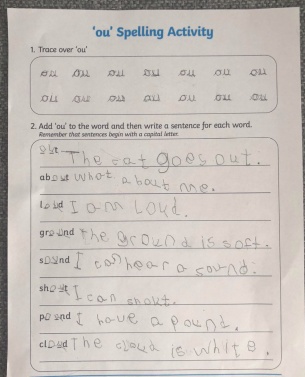 'ou' Spelling Activity
1. Trace over 'ou'
ou ou ou ou ou ou ou
ou ou ou ou ou ou ou
2. Add 'ou' to the word and then write a sentence for each word.
Remember that sentences begin with a capital letter.
out The cat goes out.
about what about me.
loud I am loud.
ground The ground is soft.
sound I can hear a sound.
shout I can shout.
pound I have a pound.
cloud The cloud is white.